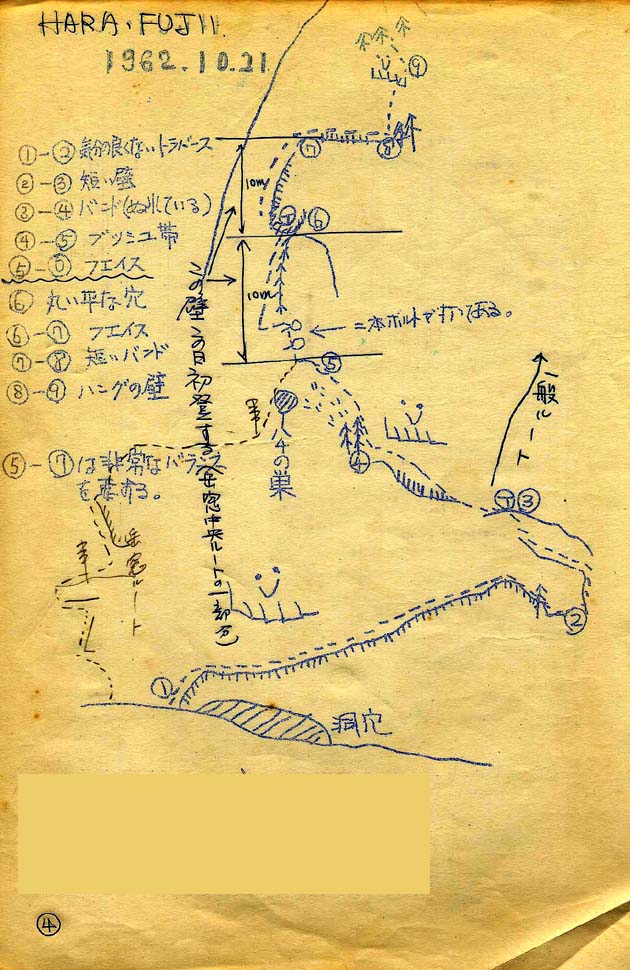 HARA・FUJII
1962.10.21
①-② 気分の良くないトラバース
②-③ 短い壁
③-④ バンド(ぬれている)
④-⑤ ブッシュ帯
⑤-⑥ フェイス
⑥ 丸い平な穴
⑥-⑦ フェイス
⑦-⑧ 短いバンド
⑧-⑨ ハングの壁
⑤-⑦は非常なバランス
を要する。
⑨
⑦
⑧
10m
⑥
10m
二本ボルトが打ってある。
⑤
この壁この日初登する(岳窓中央ルートの一部也)
ハチの巣
④
一般ルート
③
②
岳窓ルート
①
洞穴
④